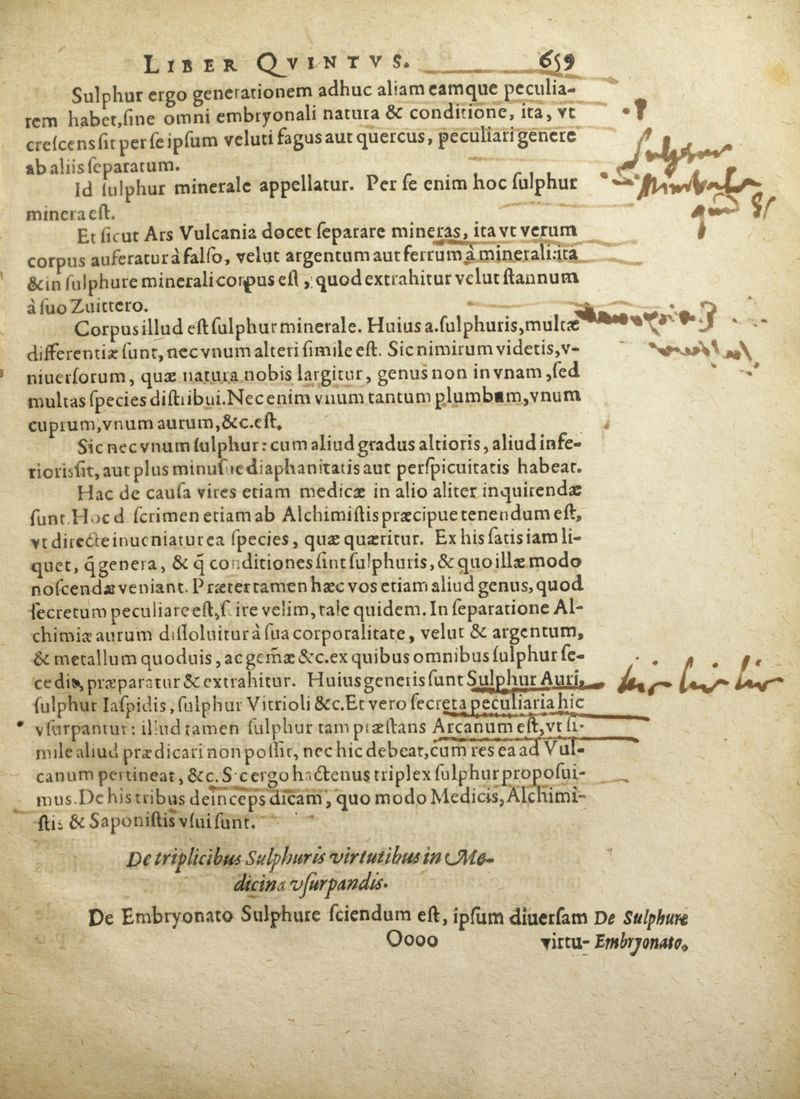 LIBER QVINTVS. 659
Sulphur ergo generationem adhuc aliam eamque peculia-
rem habet,ſine omni embryonali natura & conditione, ita, vt
creſcens ſit per ſe ipſum veluti fagus aut quercus, peculiari genere
ab aliis ſeparatum.
Id ſulphur minerale appellatur. Per ſe enim hoc ſulphur
minera eſt.
Et ſicut Ars Vulcania docet ſeparare mineras, ita vt verum
corpus auferatur à falſo, velut argentum aut ferrum à minerali:ita
& in ſulphure minerali corpus eſt, quod extrahitur velut ſtannum
à ſuo Zuittero.
Corpus illud eſt ſulphur minerale. Huius a.ſulphuris,multæ
differentiæ ſunt, nec vnum alteri ſimile eſt. Sic nimirum videtis,v-
niuerſorum, quæ natura nobis largitur, genus non in vnam ,ſed
multas ſpecies diſtribui.Nec enim vnum tantum plumbum,vnum
cuprum,vnum aurum,&c.eſt.
Sic nec vnum ſulphur: cum aliud gradus altioris, aliud infe-
rioris ſit, aut plus minuſue diaphanitatis aut perſpicuitatis habeat.
Hac de cauſa vires etiam medicæ in alio aliter inquirendæ
ſunt. Hoc d ſcrimen etiam ab Alchimiſtis præcipue tenendum eſt,
vt directe inueniatur ea ſpecies, quæ quæritur. Ex his ſatis iam li-
quet, q̃ genera, & q̃ conditiones ſint ſulphuris, & quo illæ modo
noſcendæ veniant. Præter tamen hæc vos etiam aliud genus, quod
ſecretum peculiare eſt,ſ ire velim, tale quidem. In ſeparatione Al-
chimiæ aurum diſſoluitur à ſua corporalitate, velut & argentum,
& metallum quoduis, ac gem̃æ &c.ex quibus omnibus ſulphur ſe-
cedit, præparatur & extrahitur. Huius generis ſunt Sulphur Auri,
ſulphur Iaſpidis, ſulphur Vitrioli &c.Et vero ſecreta peculiaria hic
vſurpantur: illud tamen ſulphur tam præſtans Arcanum eſt,vt ſi-
mile aliud prædicari non poſſit, nec hic debeat,cùm res ea ad Vul-
canum pertineat, &c. S c ergo hactenus triplex ſulphur propoſui-
mus.De his tribus deinceps dicam, quo modo Medicis, Alchimi-
ſtis & Saponiſtis vſui ſunt.
De triplicibus Sulphuris virtutibus in Me-
dicina vſurpandis.
De Embryonato Sulphure ſciendum eſt, ipſum diuerſam De Sulphure
Oooo virtu- Embryonato.